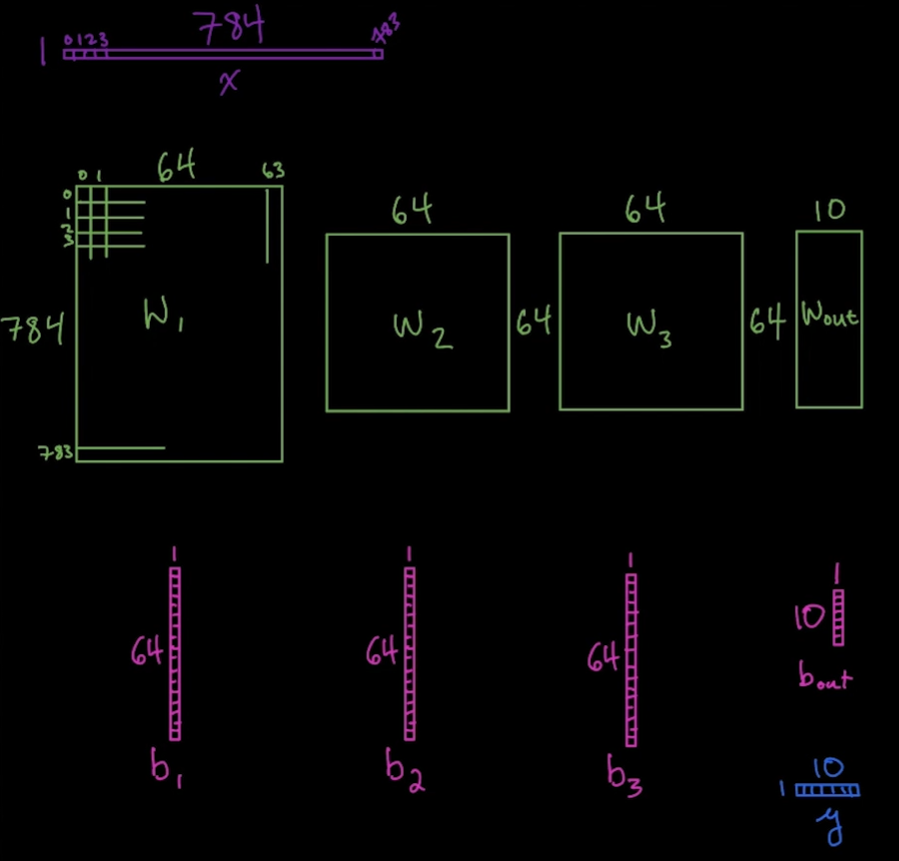 784
1 0 1 2 3 783
x
64
0 1 63
0
1
2
3
784 W₁
783
64
W₂ 64
64
W₃ 64
10
Wout
1
64
b₁
1
64
b₂
1
64
b₃
1
10
bout
10
1
y